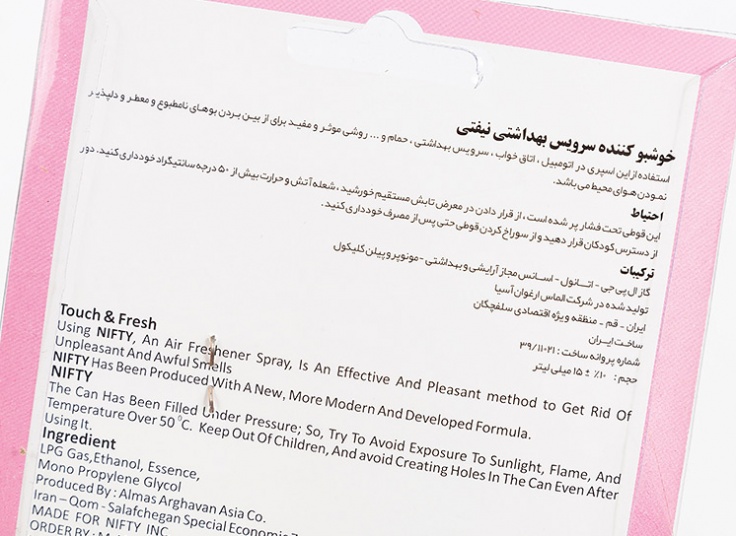 خوشبو کننده سرویس بهداشتی نیفتی
استفاده از این اسپری در اتومبیل ، اتاق خواب ، سرویس بهداشتی ، حمام و ... روشی موثر و مفید برای از بین بردن بوهای نامطبوع و معطر و دلپذیر
نمودن هوای محیط می باشد.
احتیاط
این قوطی تحت فشار پر شده است ، از قرار دادن در معرض تابش مستقیم خورشید ، شعله آتش و حرارت بیش از ۵۰ درجه سانتیگراد خودداری کنید. دور
از دسترس کودکان قرار دهید و از سوراخ کردن قوطی حتی پس از مصرف خودداری کنید.
ترکیبات
گاز ال پی جی - اتانول - اسانس مجاز آرایشی و بهداشتی - مونوپروپیلن گلیکول
تولید شده در شرکت الماس ارغوان آسیا
ایران - قم - منطقه ویژه اقتصادی سلفچگان
ساخت ایران
شماره پروانه ساخت : ۳۹/۱۱۰۲۱
حجم : ۱۰٪ ± ۱۵ میلی لیتر
Touch & Fresh
Using NIFTY, An Air Freshener Spray, Is An Effective And Pleasant method to Get Rid Of
Unpleasant And Awful Smells
NIFTY Has Been Produced With A New, More Modern And Developed Formula.
NIFTY
The Can Has Been Filled Under Pressure; So, Try To Avoid Exposure To Sunlight, Flame, And
Temperature Over 50 °C. Keep Out Of Children, And avoid Creating Holes In The Can Even After
Using It.
Ingredient
LPG Gas,Ethanol, Essence,
Mono Propylene Glycol
Produced By : Almas Arghavan Asia Co.
Iran – Qom - Salafchegan Special Economic
MADE FOR NIFTY INC
ORDER BY :